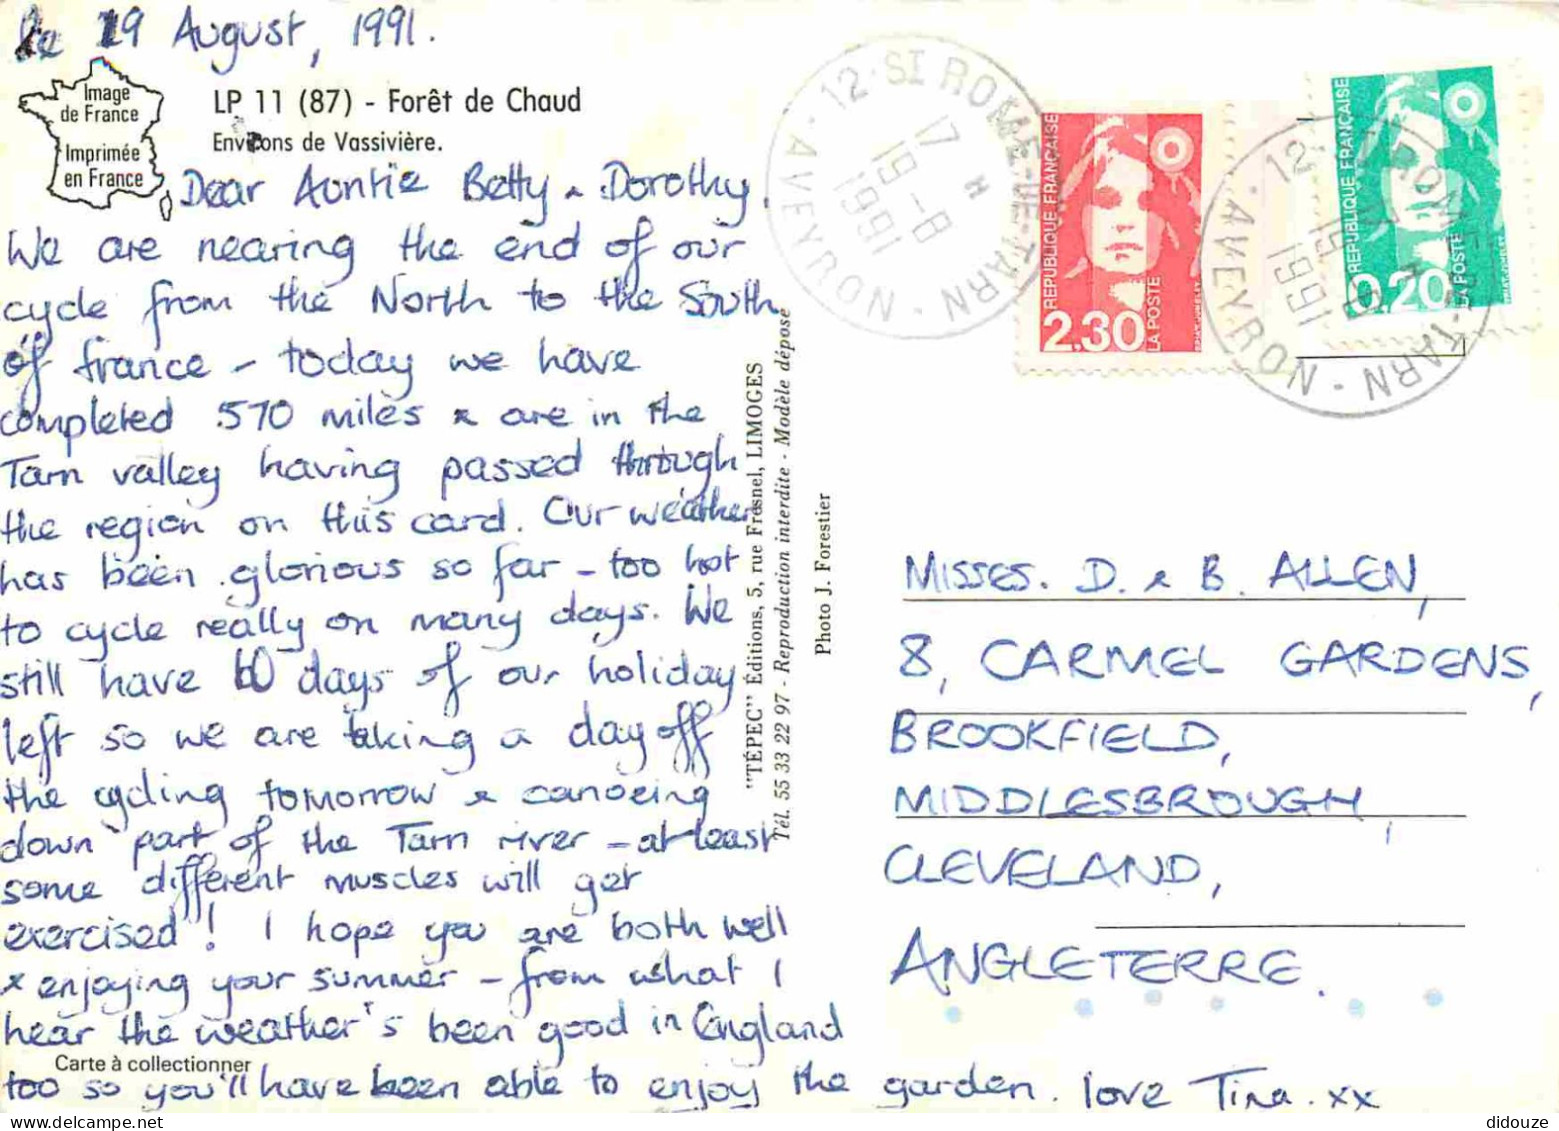 Le 19 August, 1991.
Image
de France
Imprimée
en France
LP 11 (87) - Forêt de Chaud
Environs de Vassivière.
Dear Auntie Betty & Dorothy,
We are nearing the end of our
cycle from the North to the South
of france - today we have
completed 570 miles & are in the
Tarn valley having passed through
the region on this card. Our weather
has been glorious so far - too hot
to cycle really on many days. We
still have 10 days of our holiday
left so we are taking a day off
the cycling tomorrow & canoeing
down part of the Tarn river - at least
some different muscles will get
exercised! I hope you are both well
& enjoying your summer - from what I
hear the weather's been good in England
too so you'll have been able to enjoy the garden. love Tina. xx
Carte à collectionner
"TÉPEC" Éditions, 5, rue Fresnel, LIMOGES
Tél. 55 33 22 97 - Reproduction interdite - Modèle déposé
Photo J. Forestier
12 - ST ROME-DE-TARN - AVEYRON
17 H
19-8
1991
RÉPUBLIQUE FRANÇAISE
2.30
LA POSTE
12 - ST ROME-DE-TARN - AVEYRON
17 H
19-8
1991
RÉPUBLIQUE FRANÇAISE
0.20
LA POSTE
MISSES. D. & B. ALLEN,
8, CARMEL GARDENS,
BROOKFIELD,
MIDDLESBROUGH,
CLEVELAND,
ANGLETERRE.
didouze